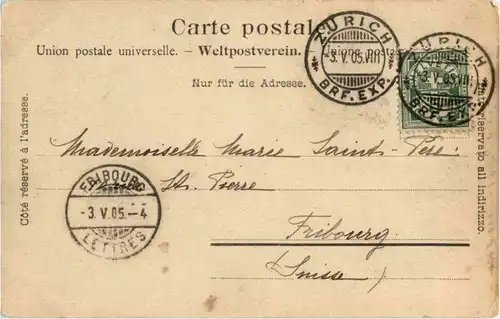 Carte postale
Union postale universelle. – Weltpostverein. – Unione postale
Nur für die Adresse.
Côté réservé à l'adresse.
riservato all indirizzo.
ZÜRICH
-3.V.05.VIII
BRF. EXP.
ZÜRICH
-3.V.05.VIII
BRF. EXP.
Mademoiselle Marie Saint-Père
St. Pierre
Fribourg
(Suisse)
FRIBOURG
-3.V.05.-4
LETTRES